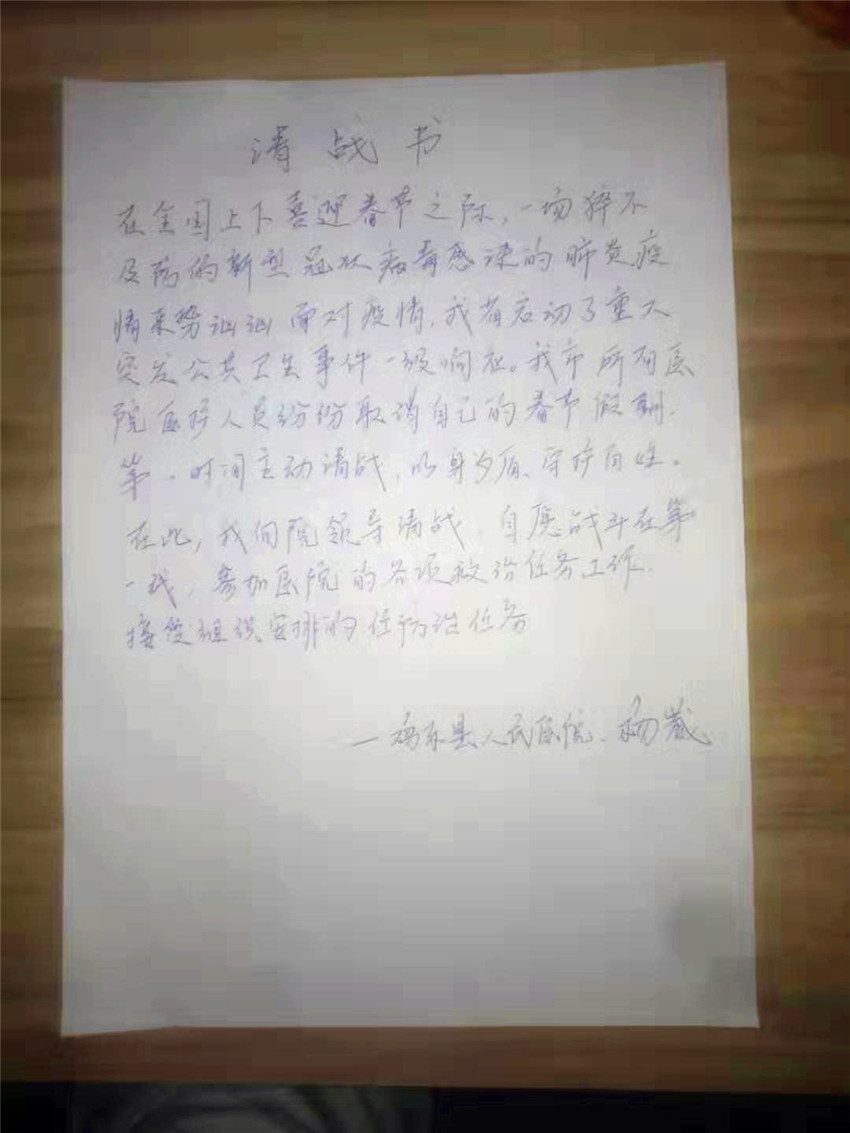 请战书
在全国上下喜迎春节之际,一场猝不
及防的新型冠状病毒感染的肺炎疫
情来势汹汹 面对疫情,我省启动了重大
突发公共卫生事件一级响应。我市所有医
院医护人员纷纷取消自己的春节假期.
第一时间主动请战,以身为盾、守护百姓。
在此,我向院领导请战,自愿战斗在第
一线,参加医院的各项救治任务工作.
接受组织安排的任何
任务
—鸡东县人民医院.杨